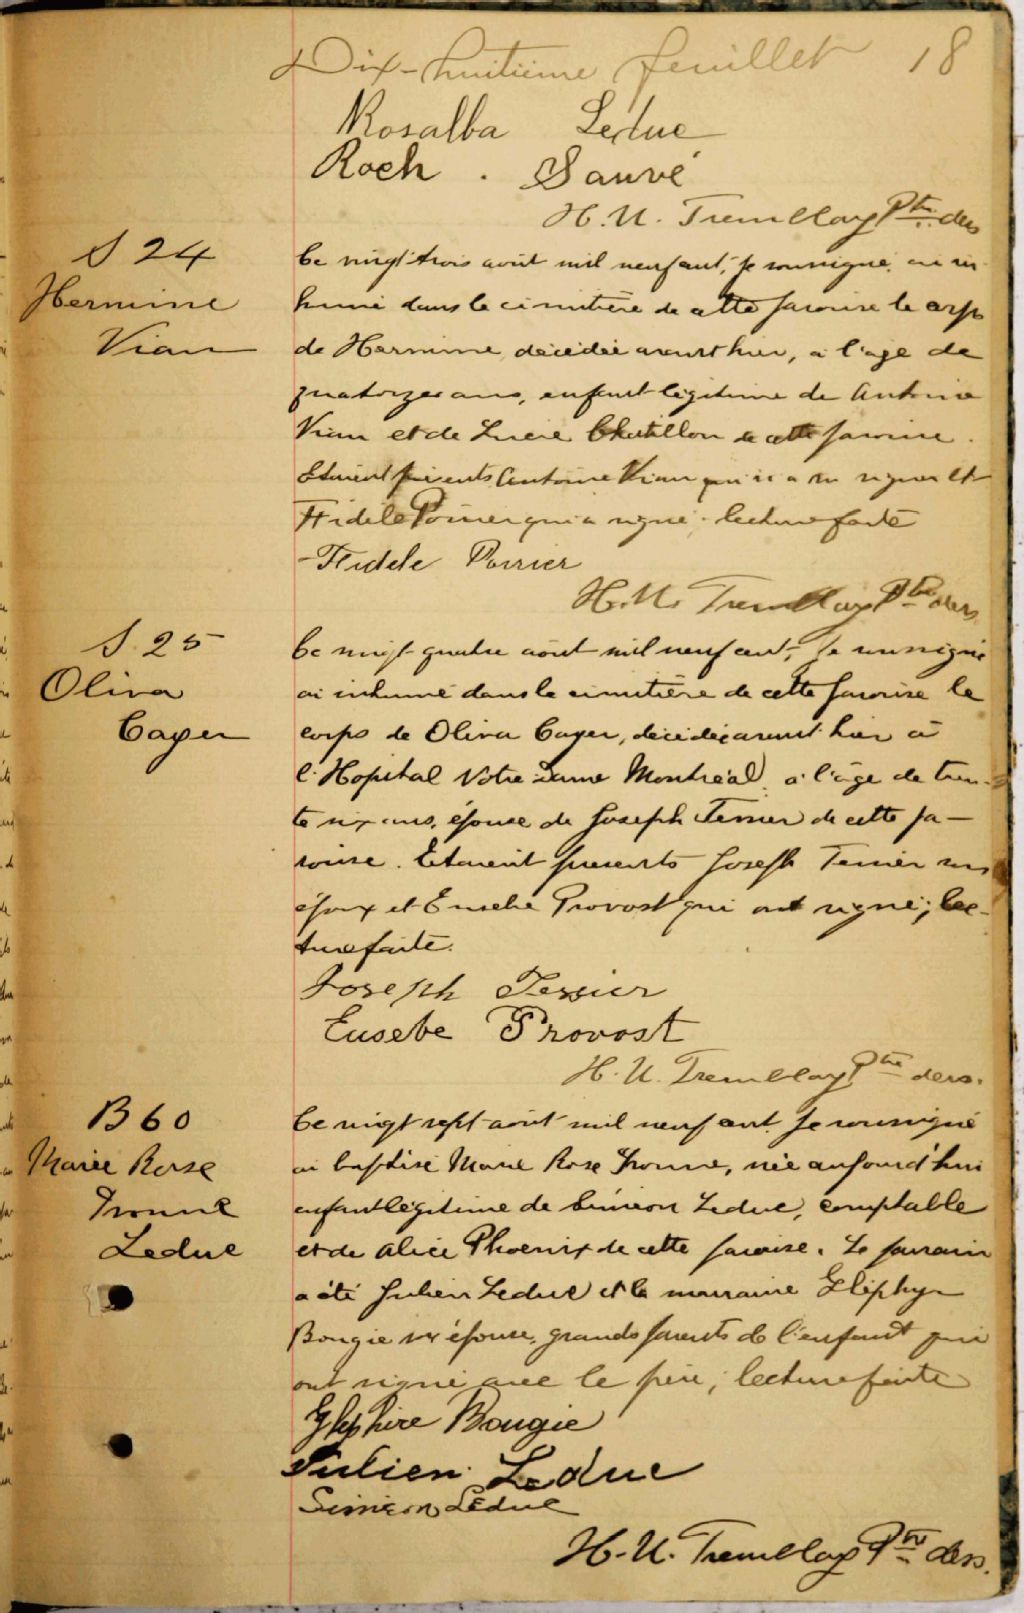 Dix-huitième feuillet 18
Rosalba Leduc
Roch . Sauvé
H. U. Tremblay Ptre ders
S 24
Hermine
Vian
Ce vingt trois août mil neuf cent, je soussigné, ai in-
humé dans le cimitière de cette paroisse le corps
de Hermine, décédée avant hier, à l'age de
quatorze ans, enfant légitime de Antoine
Vian et de Lucie Chatillon de cette paroisse.
Etaient présents Antoine Vian qui n'a su signer et
Fidèle Poirier qui a signé; lecture faite
Fidele Poirier
H. U. Tremblay Ptre ders
S. 25
Oliva
Cayer
Ce vingt-quatre août mil neuf cent, Je soussigné
ai inhumé dans le cimitière de cette paroisse le
corps de Oliva Cayer, décédée avant hier à
l'Hopital Notre Dame Montréal, à l'âge de tren-
te six ans, épouse de Joseph Tessier de cette pa-
roisse. Etaient presents Joseph Tessier son
époux et Eusebe Provost qui ont signé; lec-
ture faite.
Joseph Tessier
Eusebe Provost
H. U. Tremblay Ptre ders.
B 60
Marie Rose
Yvonne
Leduc
Ce vingt sept août mil neuf cent Je soussigné
ai baptisé Marie Rose Yvonne, née aujourd'hui
enfant légitime de Siméon Leduc, comptable
et de Alice Phoenix de cette paroisse. Le parrain
a été Julien Leduc et la marraine Gliphyr
Bougie son épouse, grands parents de l'enfant qui
ont signé avec le père; lecture faite
Glephire Bougie
Julien Leduc
Siméon Leduc
H. U. Tremblay Ptre ders.